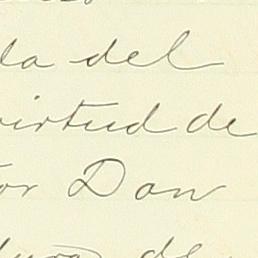 da del
virtud de
or Don
de